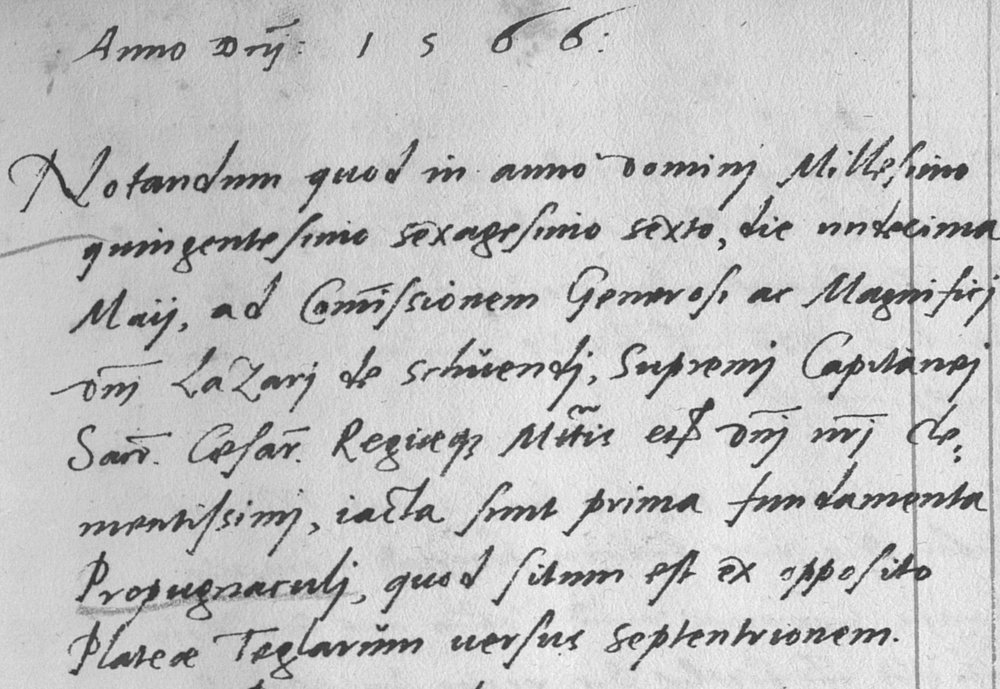 Anno Dnj: 1566:
Notandum quod in anno dominj Millesimo
quingentesimo sexagesimo sexto, die undecima
Maij, ad Com̄issionem Generosi ac Magnificj
dnj Lazarj de schŭendj, Supremj Capitanej
Sacr. Cesar. Regieq3 Mtis etc dnj nrj cle-
mentissimj, iacta sunt prima fundamenta
Propugnaculj, quod situm est ex opposito
Plateæ Teglarŭm uersus septentrionem.